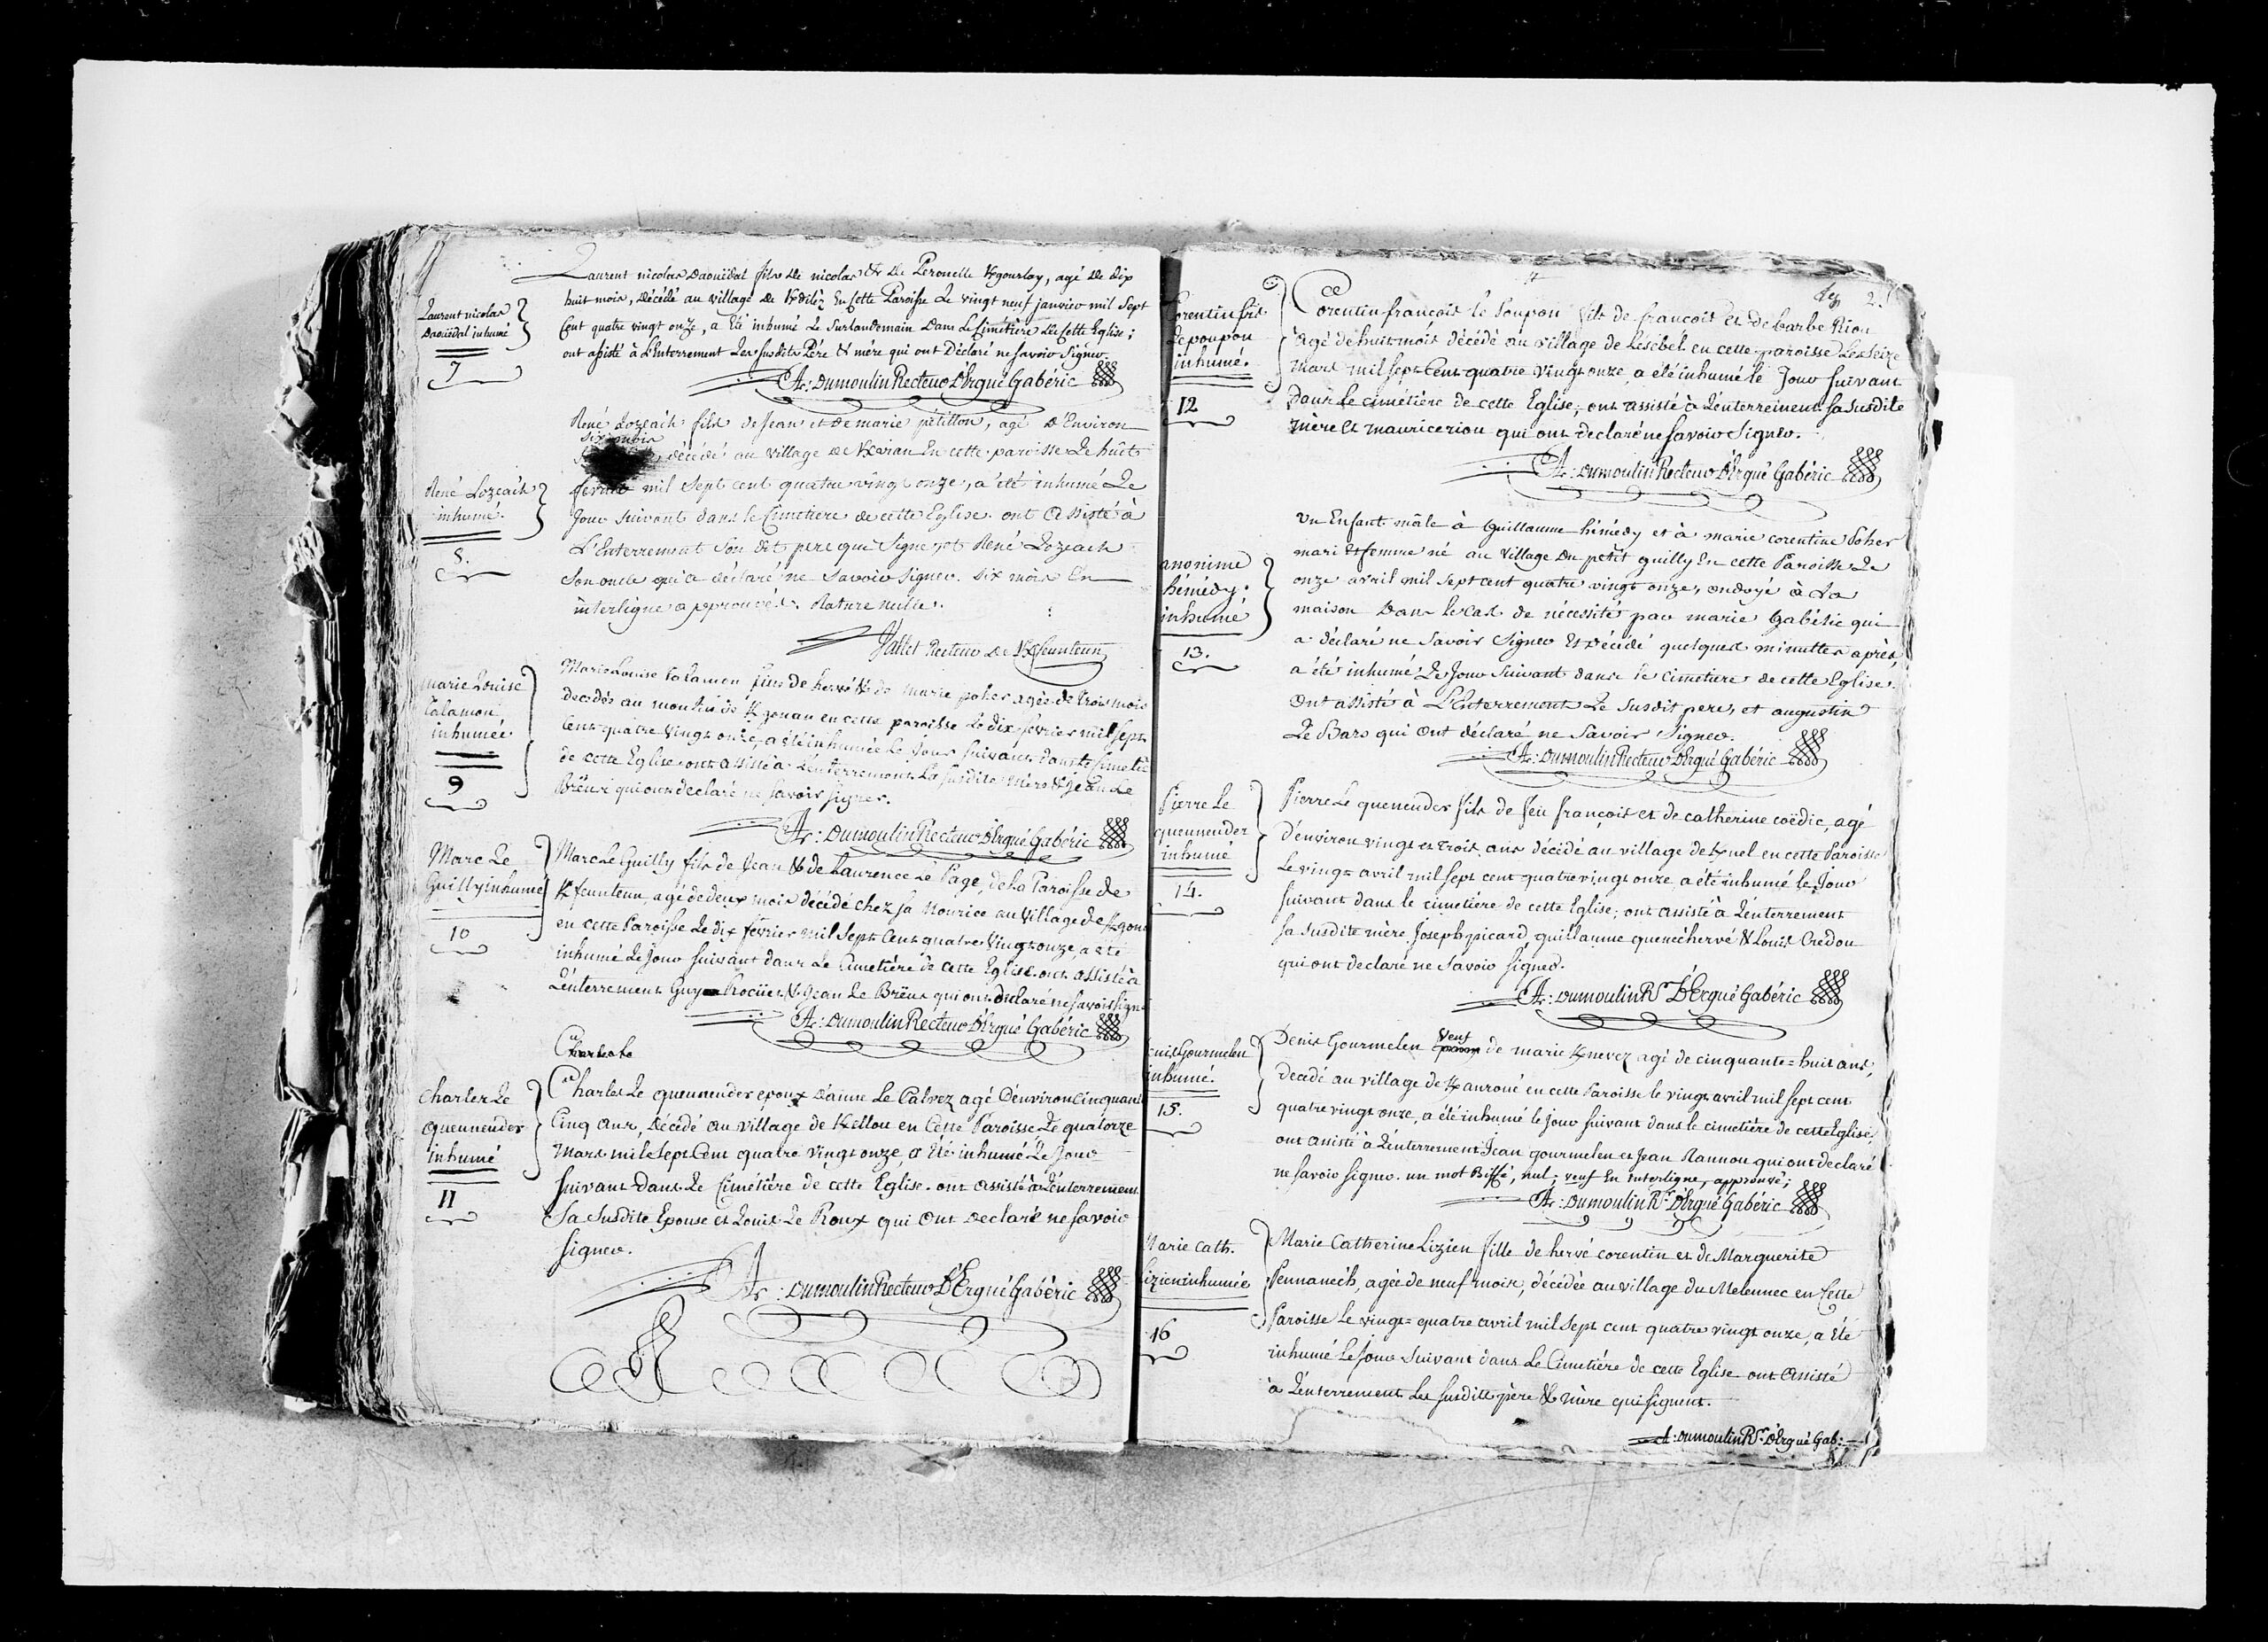 Laurent nicolas
Daouëdal inhumé
7
Laurent nicolas Daouëdal fils de nicolas & de Peronelle Kgourlay, agé de dix
huit mois, décédé au village de Kdilèz En cette Paroisse Le vingt neuf janvier mil sept
Cent quatre vingt onze, a Eté inhumé Le Surlandemain Dans Le Cimétiére de Cette Eglise ;
ont assisté à L'Enterrement Les susdits Pére & mére qui ont Déclaré ne savoir Signer.
A: Dumoulin Recteur D'Ergué Gabéric
René Lozeach
inhumé.
8.
René Lozeach fils de Jean et de marie pétillon, agé d'Environ
six mois
décédé au village de Kvrian En cette paroisse Le huit
fevrier mil Sept cent quatre vingt onze, a été inhumé Le
Jour Suivant dans le Cimetiere de cette Eglise. ont assisté à
L'Enterrement Son dit pere qui Signe, et René Lozeach
Son oncle qui a déclaré ne Savoir Signer. Six mois En
interligne approuvés. Rature nulle.
Vallet Recteur de Kfeunteun
marie Louise
Talamon
inhumée.
9
Marie Louise Talamon fille de hervé & de Marie poher agée de trois mois
decedée au moulin de Kgonan en cette paroisse Le dix fevrier mil sept
Cent quatre vingt onze, a été inhumée Le Jour suivant dans le Cimetiè
de cette Eglise. ont assisté à L'enterrement La susdite mère & jean Le
Brëus qui ont declaré ne savoir signer.
A: Dumoulin Recteur D'Ergué Gabéric
Marc Le
Guilly inhumé
10
Marc Le Guilly fils de Jean & de Laurence Le Page, de La Paroisse de
Kfeunteun, agé de deux mois décédé chez sa Nourice au Village de Kgon
en cette Paroisse Le dix fevrier mil Sept Cent quatre Vingt onze, a eté
inhumé Le Jour suivant dans Le Cimetiére de cette Eglise. ont assisté à
L'enterrement Guy Rocüet & Jean Le Brëus qui ont déclaré ne savoir sign
A: Dumoulin Récteur D'Ergué Gabéric
Charles Le
queneudec
inhumé
11
Charles Le queneudec epoux d'anne Le Calvez agé D'environ Cinquant
Cinq ans, Décédé au village de Kellou en Cette Paroisse Le quatorze
Mars mil Sept Cent quatre vingt onze, a Eté inhumé Le Jour
suivant dans Le Cimétiére de cette Eglise. ont assisté à L'enterrement
Sa Susdite Epouse et Louis Le Roux qui ont declaré ne savoir
Signer.
A: Dumoulin Recteur D'Ergué Gabéric
2.
Corentin fr
Le poupon
inhumé.
12
Corentin françois le Poupon fils de francois et de barbe Riou
agé de huit mois décédé au village de Lesébel en cette paroisse Le Seize
Mars mil sept Cent quatre Vingt onze, a été inhumé le Jour suivant
Dans le cimétiére de cette Eglise ; ont assisté à L'enterrement sa susdite
mère Et maurice riou qui ont declaré ne savoir Signer.
A: Dumoulin Recteur D'Ergué Gabéric
anonime
hémédy.
inhumé
13.
un Enfant mâle à Guillaume hémédy et à marie corentine Poher
mari Et femme né au village du petit guilly En cette Paroisse Le
onze avril mil Sept cent quatre vingt onze, ondoyé à La
maison Dans le cas de nécessité par marie Gabélic qui
a déclaré ne Savoir Signer Et Décédé quelques minuttes après,
a été inhumé Le Jour Suivant dans le cimetiere de cette Eglise.
ont assisté à L'Enterrement Le Susdit pere, et augustin
Le Bars qui ont déclaré ne Savoir Signer.
A: Dumoulin Recteur D'Ergué Gabéric
Pierre Le
queneuder
inhumé
14.
Pierre Le queneuder fils de feu françois et de catherine coëdic, agé
d'environ vingt et trois ans décédé au village de Knel en cette Paroisse
Le vingt avril mil sept cent quatre vingt onze a été inhumé le Jour
suivant dans le cimetiére de cette Eglise ; ont assisté à L'enterrement
sa susdite mère, Joseph picard, guillaume quenec'hervé & Louis Credou
qui ont declaré ne savoir signer.
A: Dumoulin Rr D'Ergué Gabéric
Gourmelen
inhumé.
15.
Veuf
Denis Gourmelen de marie Knevez agé de cinquante=huit ans,
decedé au village de Kauroué en cette Paroisse le vingt avril mil sept cent
quatre vingt onze, a été inhumé le jour suivant dans le cimetière de cette Eglise.
ont assisté à L'enterrement Jean gourmelen et Jean Rannou qui ont declaré
ne savoir signer. un mot Biffé, nul ; veuf En interligne, approuvé ;
A: Dumoulin Rr D'Ergué Gabéric
Marie Cath.
Lizien inhumée
16
Marie Catherine Lizien fille de hervé corentin et de Marguerite
Pennanéch, agée de neuf mois, décédée au village du Melennec en Cette
Paroisse Le vingt=quatre avril mil Sept cent quatre vingt onze, a été
inhumé Le Jour suivant dans Le Cimetiére de cette Eglise ont assisté
à L'enterrement Les susdits père & mère qui signent.
A: Dumoulin Rr D'Ergué Gab: